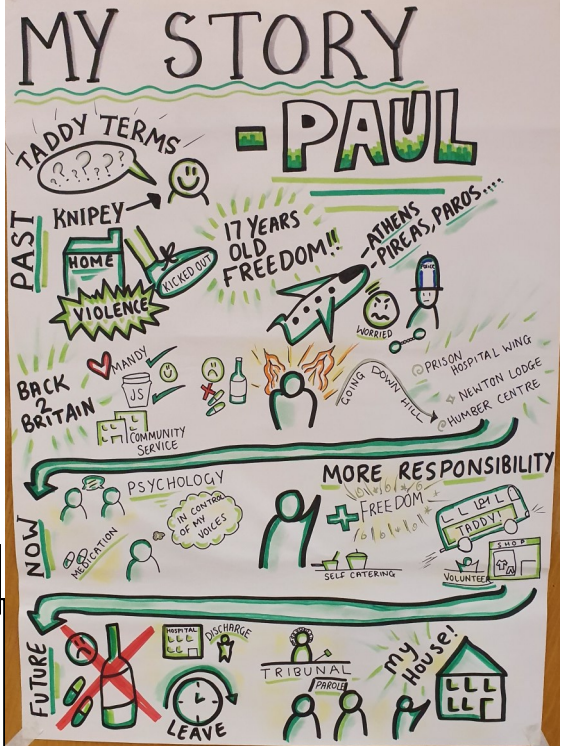 MY STORY
- PAUL
TADDY TERMS
? ? ? ? ?
PAST
KNIPEY
HOME
KICKED OUT
VIOLENCE
17 YEARS
OLD
FREEDOM!!
- ATHENS
- PIREAS, PAROS....
POLICE
WORRIED
BACK
2
BRITAIN
MANDY
JS
COMMUNITY
SERVICE
GOING DOWN HILL
PRISON
HOSPITAL WING
NEWTON LODGE
HUMBER CENTRE
NOW
PSYCHOLOGY
MEDICATION
IN CONTROL
OF MY
VOICES
MORE RESPONSIBILITY
+ FREEDOM
SELF CATERING
TADDY!
SHOP
VOLUNTEER
FUTURE
HOSPITAL
DISCHARGE
LEAVE
TRIBUNAL
PAROLE
MY
HOUSE!